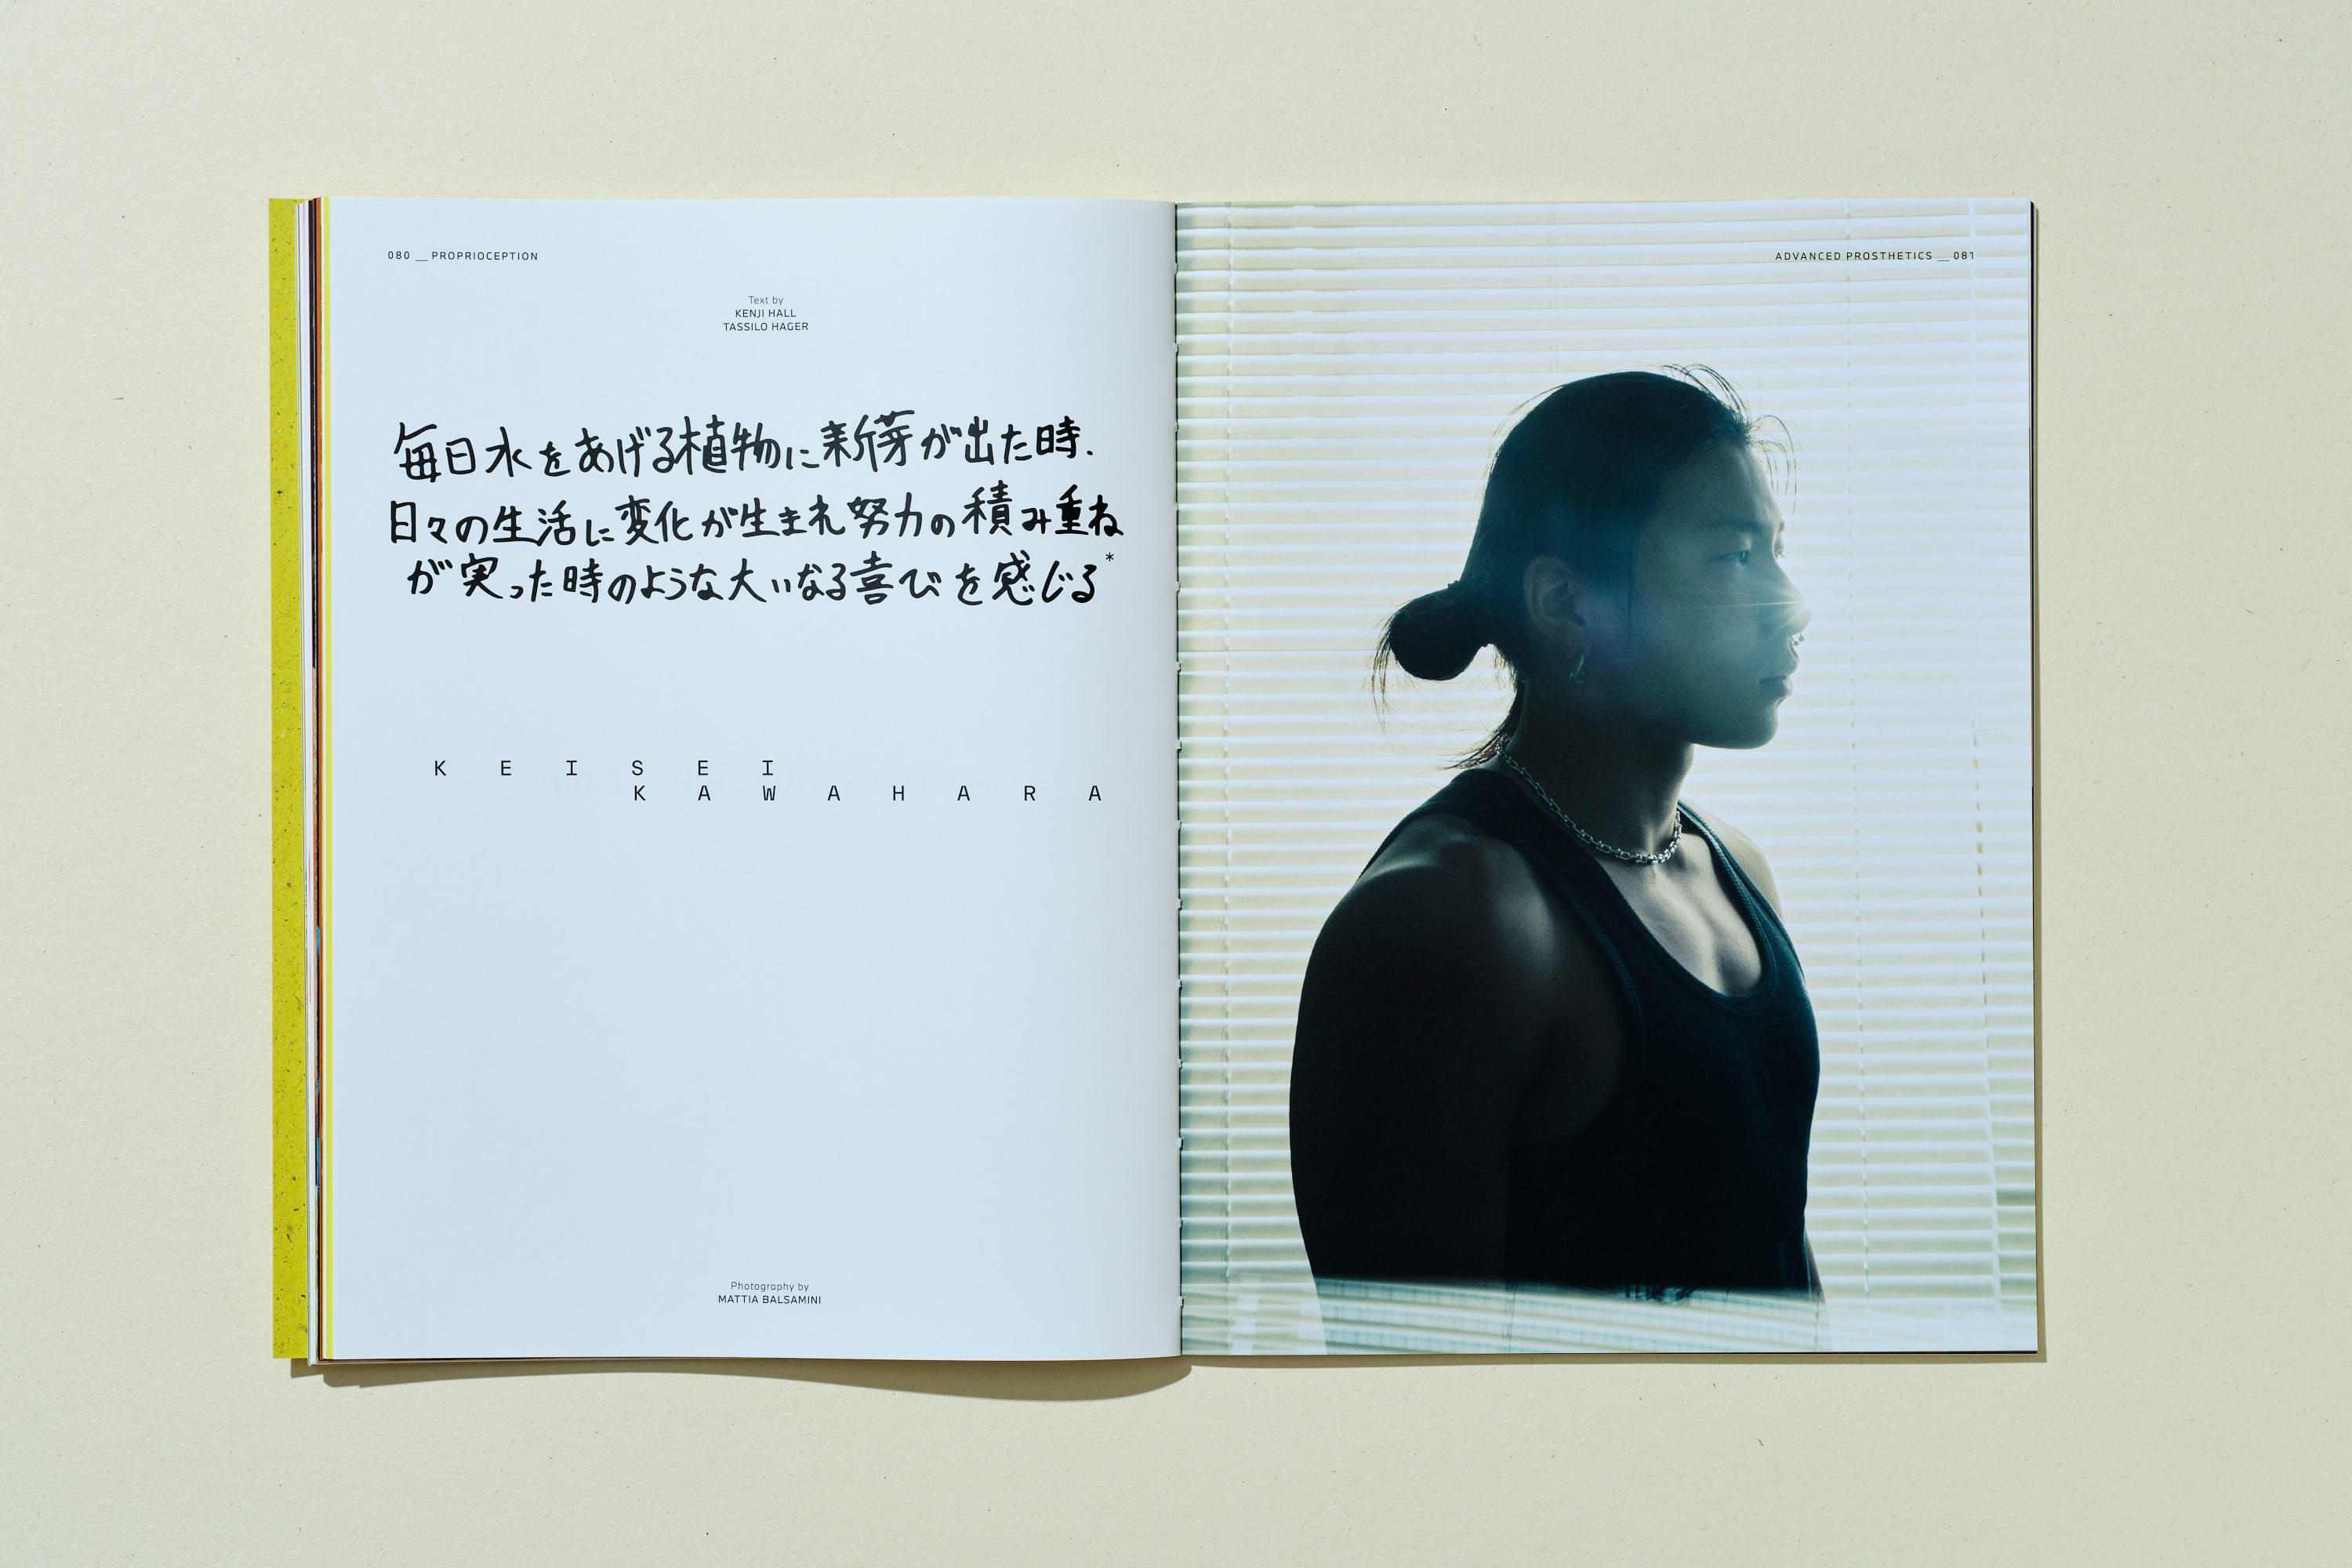 080 __ PROPRIOCEPTION
Text by
KENJI HALL
TASSILO HAGER
毎日水をあげる植物に新芽が出た時、
日々の生活に変化が生まれ努力の積み重ね
が実った時のような大いなる喜びを感じる*
KEISEI
KAWAHARA
Photography by
MATTIA BALSAMINI
ADVANCED PROSTHETICS __ 081